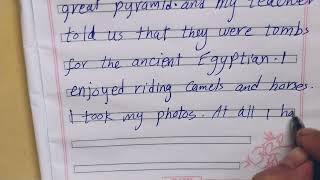 great pyramid. and my teacher
told us that they were tombs
for the ancient Egyptian. I
enjoyed riding camels and horses.
I took my photos. At all I ha